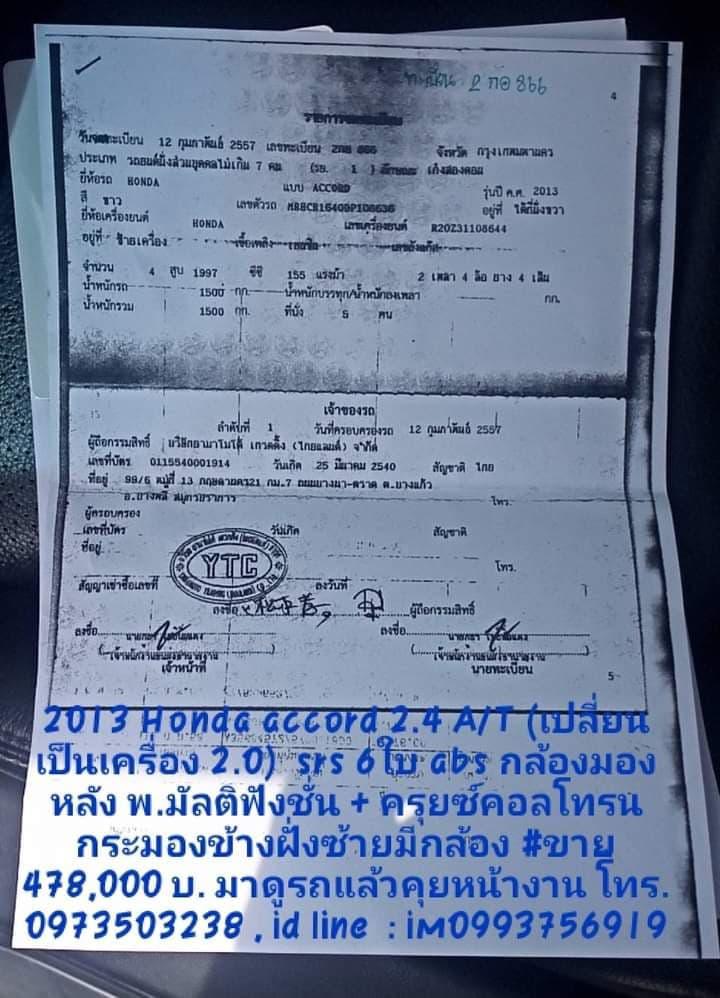 ทะเบียน 2 กอ 866
4
รายการจดทะเบียน
วันจดทะเบียน 12 กุมภาพันธ์ 2557 เลขทะเบียน จังหวัด กรุงเทพมหานคร
ประเภท รถยนต์นั่งส่วนบุคคลไม่เกิน 7 คน (รย. 1 ) ลักษณะ เก๋งสองตอน
ยี่ห้อรถ HONDA แบบ ACCORD รุ่นปี ค.ศ. 2013
สี ขาว เลขตัวรถ อยู่ที่ ใต้ที่นั่งขวา
ยี่ห้อเครื่องยนต์ HONDA เลขเครื่องยนต์ R20Z31108644
อยู่ที่ ซ้ายเครื่อง เชื้อเพลิง เบนซิน เลขถังแก๊ส
จำนวน 4 สูบ 1997 ซีซี 155 แรงม้า 2 เพลา 4 ล้อ ยาง 4 เส้น
น้ำหนักรถ 1500 กก. น้ำหนักบรรทุก/น้ำหนักลงเพลา กก.
น้ำหนักรวม 1500 กก. ที่นั่ง 5 คน
เจ้าของรถ
ลำดับที่ 1 วันที่ครอบครองรถ 12 กุมภาพันธ์ 2557
ผู้ถือกรรมสิทธิ์ เทรดดิ้ง (ไทยแลนด์) จำกัด
เลขที่บัตร 0115540001914 วันเกิด 25 มีนาคม 2540 สัญชาติ ไทย
ที่อยู่ 99/6 หมู่ที่ 13 กม.7 ถนนบางนา-ตราด ต.บางแก้ว
อ.บางพลี สมุทรปราการ โทร.
ผู้ครอบครอง
เลขที่บัตร วันเกิด สัญชาติ
ที่อยู่ โทร.
YTC
สัญญาเช่าซื้อเลขที่ ลงวันที่
ลงชื่อ ผู้ถือกรรมสิทธิ์
ลงชื่อ ลงชื่อ
เจ้าหน้าที่ นายทะเบียน
5
2013 Honda accord 2.4 A/T (เปลี่ยน
เป็นเครื่อง 2.0) srs 6ใบ abs กล้องมอง
หลัง พ.มัลติฟังชั่น + ครุยซ์คอลโทรน
กระมองข้างฝั่งซ้ายมีกล้อง #ขาย
478,000 บ. มาดูรถแล้วคุยหน้างาน โทร.
0973503238 , id line : iM0993756919